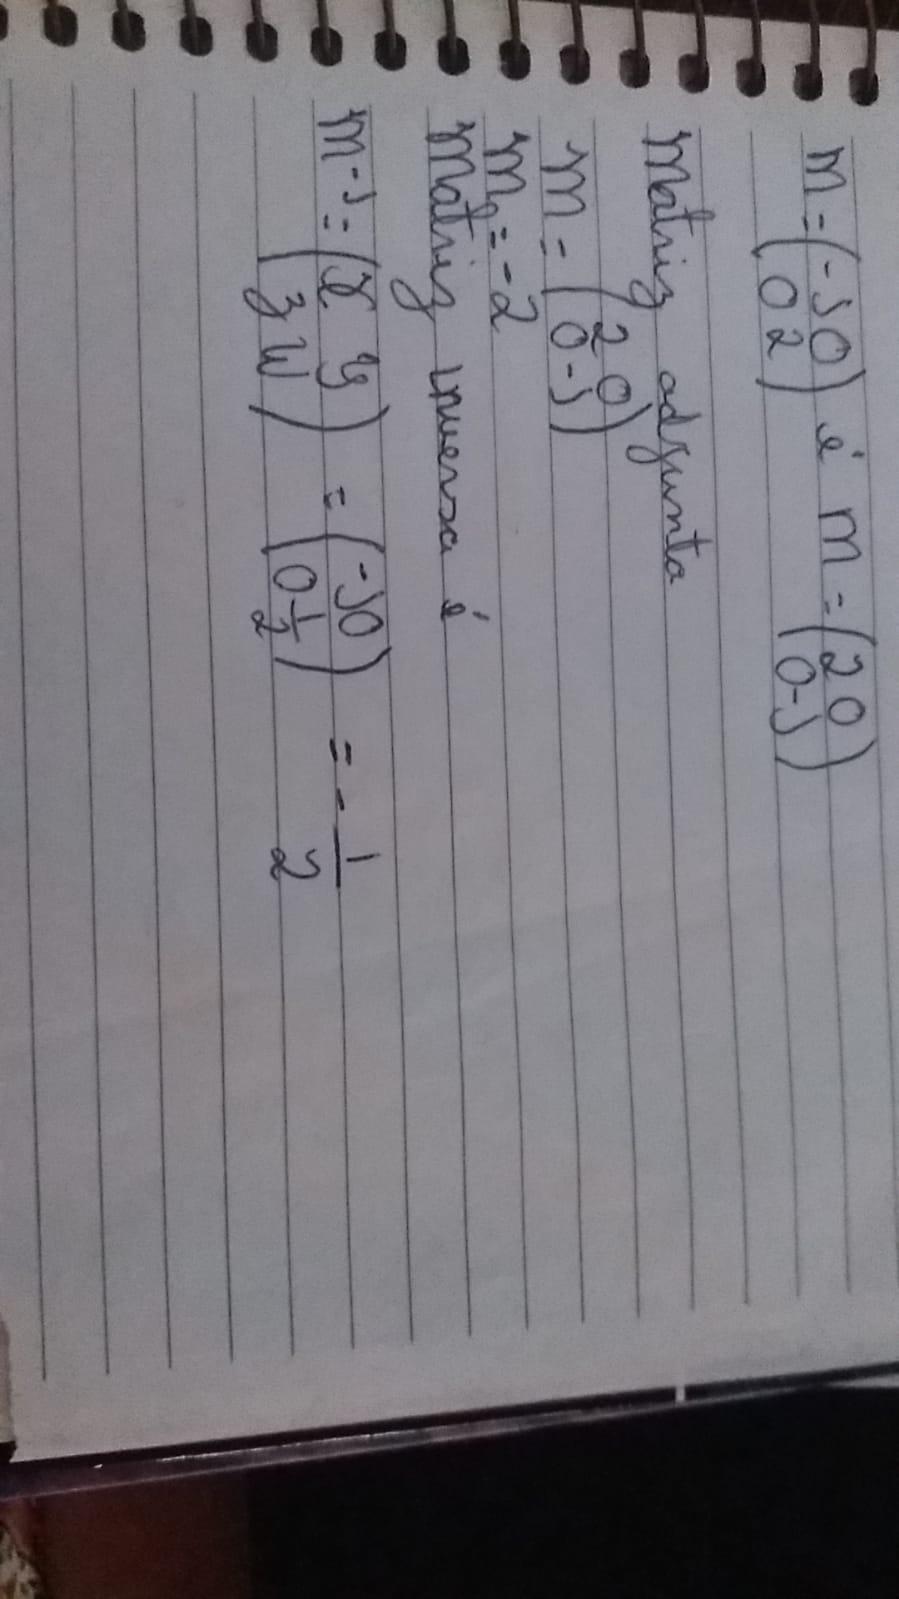 m = (-1 0) é m = (2 0)
(0 2) (0 -1)
Matriz adjunta
m = (2 0)
(0 -1)
m = -2
Matriz inversa é
m-1 = (x y) = (-1 0) = - 1
(z w) (0 1/2) 2